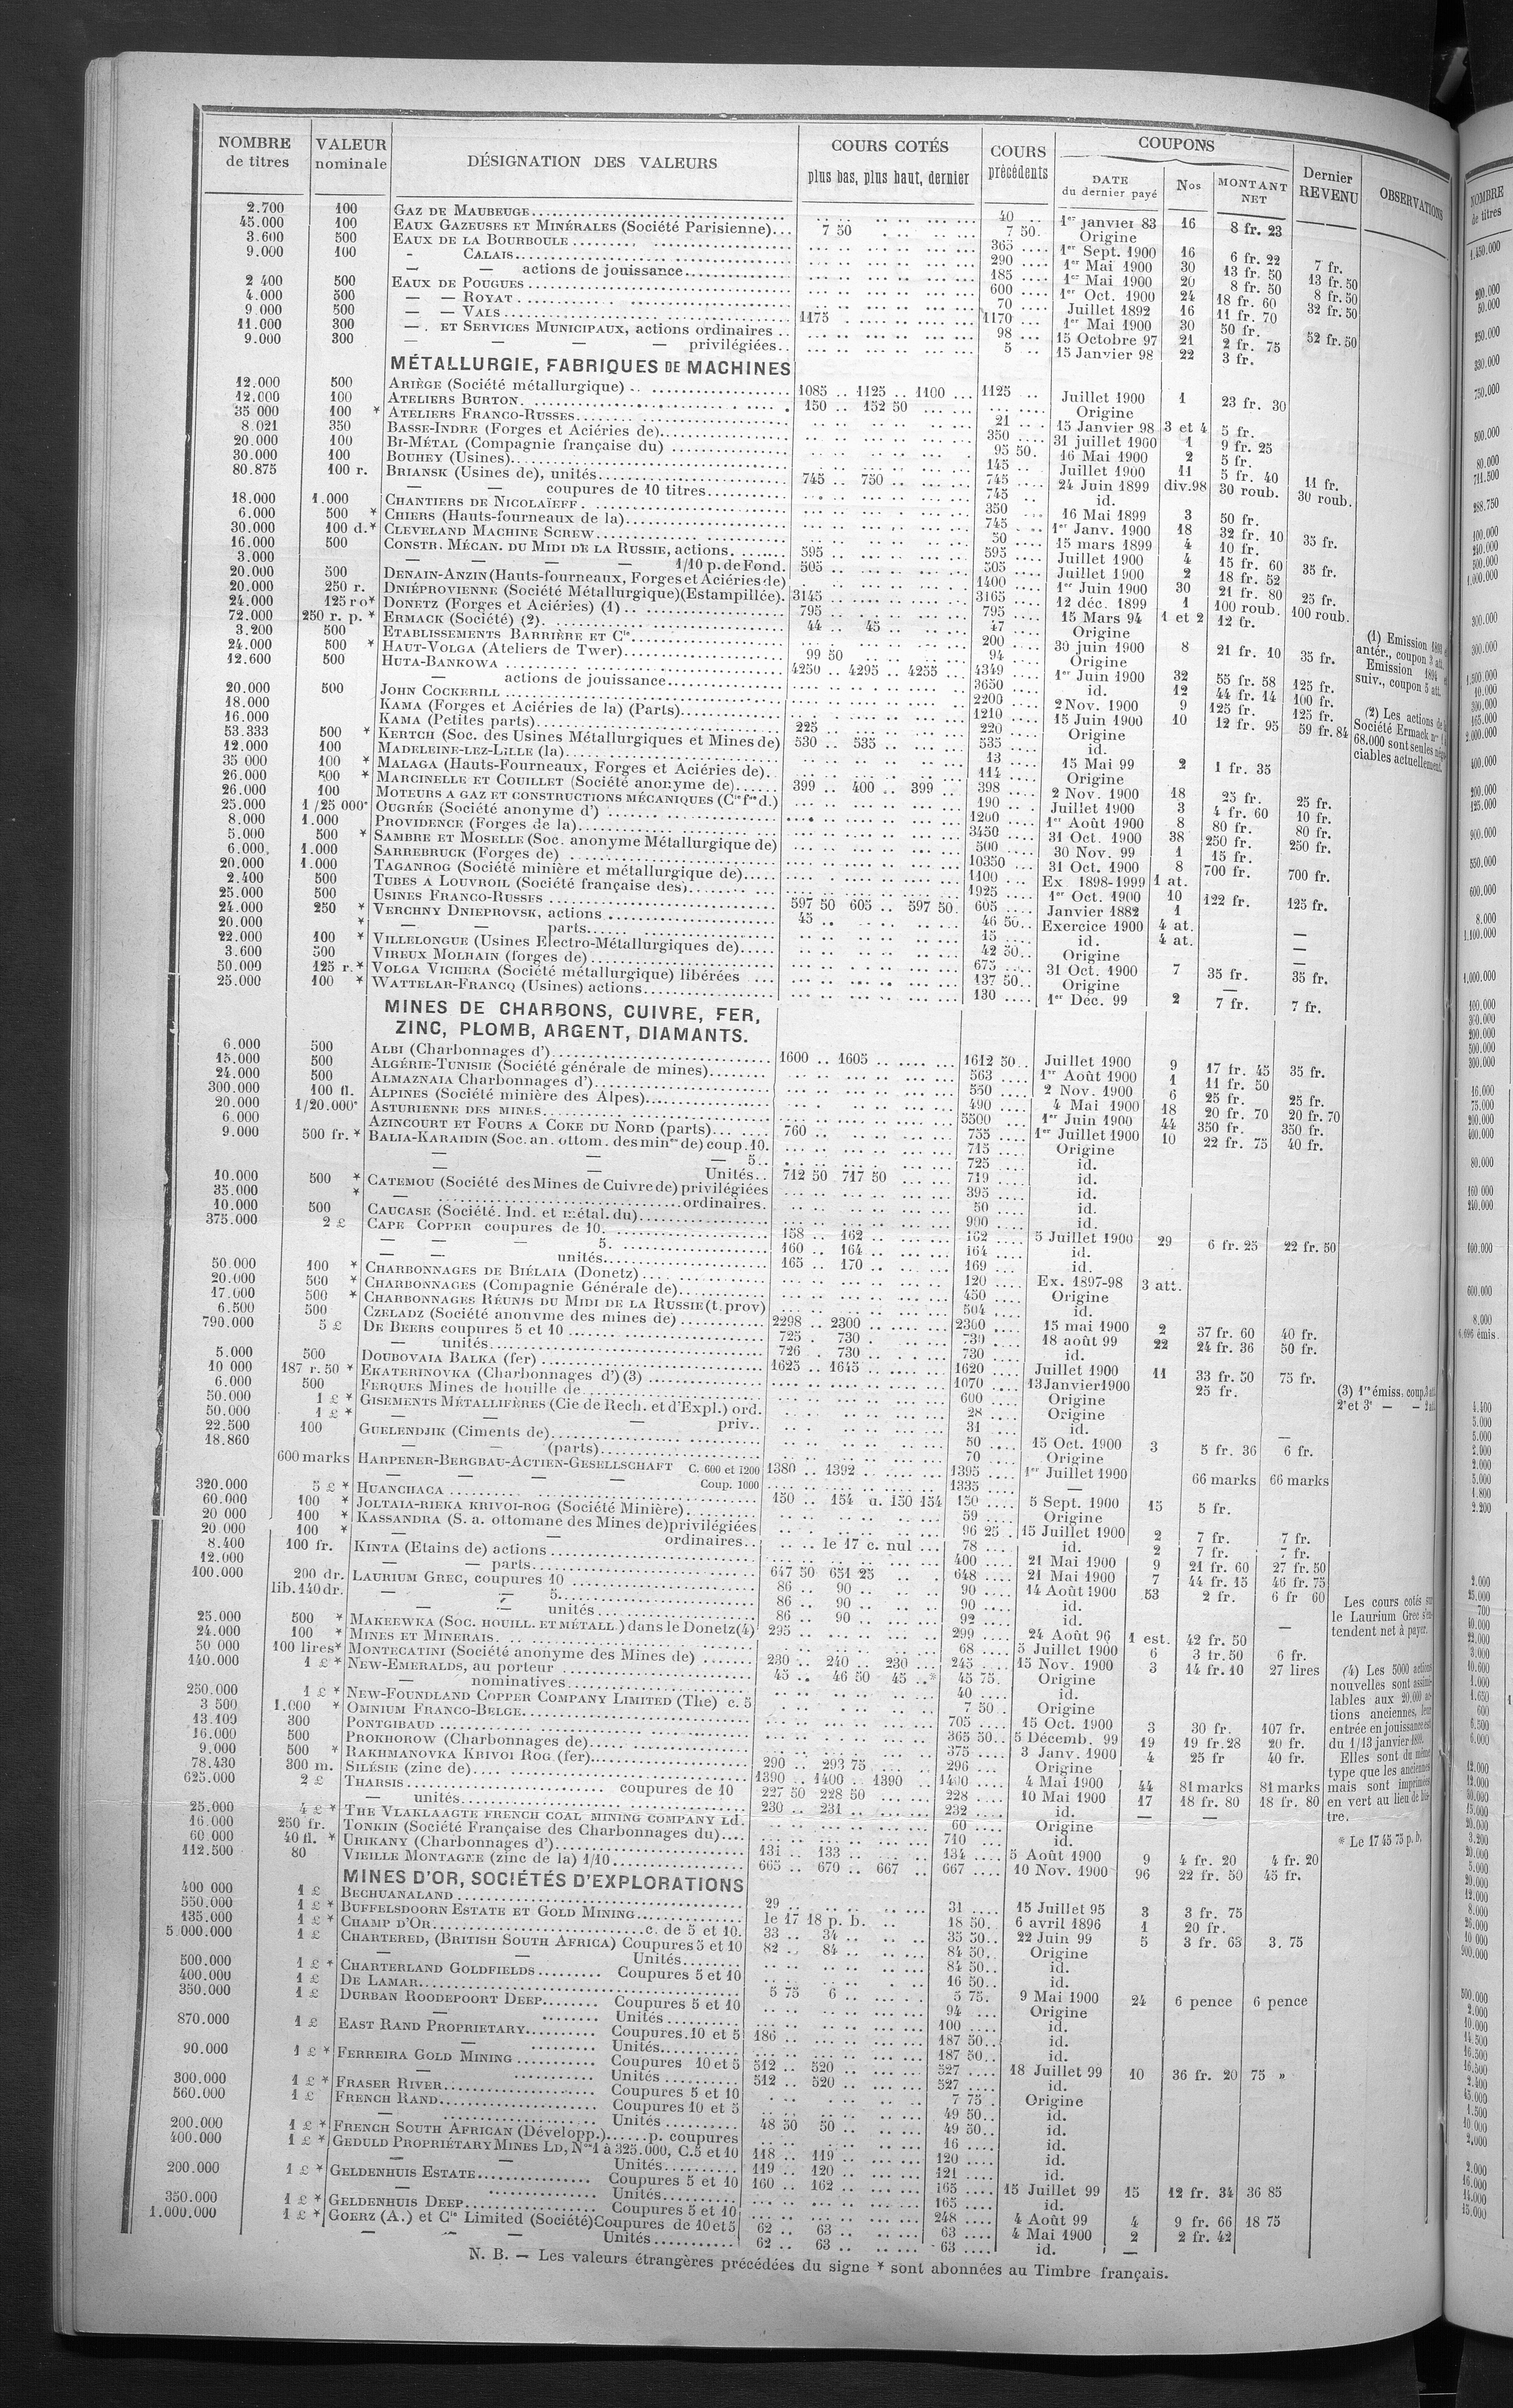 NOMBRE de titres | VALEUR nominale | DÉSIGNATION DES VALEURS | COURS COTÉS plus bas, plus haut, dernier | COURS précédents | COUPONS DATE du dernier payé | Nos | MONTANT NET | Dernier REVENU | OBSERVATIONS
2.700 100 GAZ DE MAUBEUGE 40 1er janvier 83 16 8 fr. 23
45.000 100 EAUX GAZEUSES ET MINÉRALES (Société Parisienne) 7 50 7 50 Origine
3.600 500 EAUX DE LA BOURBOULE 365 1er Sept. 1900 16 6 fr. 22 7 fr.
9.000 100 - CALAIS 290 1er Mai 1900 30 13 fr. 50 13 fr. 50
— — actions de jouissance 185 1er Mai 1900 20 8 fr. 50 8 fr. 50
2 400 500 EAUX DE POUGUES 600 1er Oct. 1900 24 18 fr. 60 32 fr. 50
4.000 500 — — ROYAT 70 Juillet 1892 16 11 fr. 70
9.000 500 — — VALS 1175 1170 1er Mai 1900 30 50 fr. 52 fr. 50
11.000 300 — ET SERVICES MUNICIPAUX, actions ordinaires 98 15 Octobre 97 21 2 fr. 75
9.000 300 — — — — privilégiées 5 15 Janvier 98 22 3 fr.
MÉTALLURGIE, FABRIQUES DE MACHINES
12.000 500 ARIÈGE (Société métallurgique) 1085 1125 1100 1125 Juillet 1900 1 23 fr. 30
12.000 100 ATELIERS BURTON 150 152 50 Origine
35 000 100 * ATELIERS FRANCO-RUSSES 21 15 Janvier 98 3 et 4 5 fr.
8.021 350 BASSE-INDRE (Forges et Aciéries de) 350 31 juillet 1900 1 9 fr. 25
20.000 100 BI-MÉTAL (Compagnie française du) 95 50 16 Mai 1900 2 5 fr.
30.000 100 BOUHEY (Usines) 145 Juillet 1900 11 5 fr. 40 11 fr.
80.875 100 r. BRIANSK (Usines de), unités 745 750 745 24 Juin 1899 div.98 30 roub. 30 roub.
— — coupures de 10 titres 745 id.
18.000 1.000 CHANTIERS DE NICOLAÏEFF 350 16 Mai 1899 3 50 fr.
6.000 500 * CHIERS (Hauts-fourneaux de la) 745 1er Janv. 1900 18 32 fr. 10 35 fr.
30.000 100 d.* CLEVELAND MACHINE SCREW 50 15 mars 1899 4 10 fr.
16.000 500 CONSTR. MÉCAN. DU MIDI DE LA RUSSIE, actions 595 595 Juillet 1900 4 15 fr. 60 35 fr.
3.000 — — — — 1/10 p. de Fond. 505 505 Juillet 1900 2 18 fr. 52
20.000 500 DENAIN-ANZIN (Hauts-fourneaux, Forges et Aciéries de) 1400 1er Juin 1900 30 21 fr. 80 25 fr.
20.000 250 r. DNIÉPROVIENNE (Société Métallurgique) (Estampillée) 3145 3165 12 déc. 1899 1 100 roub. 100 roub.
24.000 125 ro* DONETZ (Forges et Aciéries) (1) 795 795 15 Mars 94 1 et 2 12 fr.
72.000 250 r. p. * ERMACK (Société) (2) 44 45 47 Origine
3.200 500 ETABLISSEMENTS BARRIÈRE ET Cie 200 30 juin 1900 8 21 fr. 10 35 fr.
24.000 500 * HAUT-VOLGA (Ateliers de Twer) 99 50 94 Origine
12.600 500 HUTA-BANKOWA 4250 4295 4255 4349 1er Juin 1900 32 55 fr. 58 125 fr.
— actions de jouissance 3650 id. 12 44 fr. 14 100 fr.
20.000 500 JOHN COCKERILL 2200 2 Nov. 1900 9 125 fr. 125 fr.
18.000 KAMA (Forges et Aciéries de la) (Parts) 1210 15 Juin 1900 10 12 fr. 95 59 fr. 84
16.000 KAMA (Petites parts) 225 220 Origine
53.333 500 * KERTCH (Soc. des Usines Métallurgiques et Mines de) 530 535 535 id.
12.000 100 MADELEINE-LEZ-LILLE (la) 13 15 Mai 99 2 1 fr. 35
35 000 100 * MALAGA (Hauts-Fourneaux, Forges et Aciéries de) 114 Origine
26.000 500 * MARCINELLE ET COUILLET (Société anonyme de) 399 400 399 398 2 Nov. 1900 18 25 fr. 25 fr.
26.000 100 MOTEURS A GAZ ET CONSTRUCTIONS MÉCANIQUES (Cie fse d.) 190 Juillet 1900 3 4 fr. 60 10 fr.
25.000 1/25 000e OUGRÉE (Société anonyme d') 1200 1er Août 1900 8 80 fr. 80 fr.
8.000 1.000 PROVIDENCE (Forges de la) 3450 31 Oct. 1900 38 250 fr. 250 fr.
5.000 500 * SAMBRE ET MOSELLE (Soc. anonyme Métallurgique de) 500 30 Nov. 99 1 15 fr.
6.000 1.000 SARREBRUCK (Forges de) 10350 31 Oct. 1900 8 700 fr. 700 fr.
20.000 1.000 TAGANROG (Société minière et métallurgique de) 1100 Ex 1898-1999 1 at.
2.400 500 TUBES A LOUVROIL (Société française des) 1925 1er Oct. 1900 10 122 fr. 125 fr.
25.000 500 USINES FRANCO-RUSSES 597 50 605 597 50 605 Janvier 1882 1
24.000 250 * VERCHNY DNIEPROVSK, actions 45 46 50 Exercice 1900 4 at. —
20.000 * — — parts 15 id. 4 at. —
22.000 100 * VILLELONGUE (Usines Electro-Métallurgiques de) 42 50 Origine —
3.600 500 VIREUX MOLHAIN (forges de) 675 31 Oct. 1900 7 35 fr. 35 fr.
50.000 125 r.* VOLGA VICHERA (Société métallurgique) libérées 137 50 Origine —
25.000 100 * WATTELAR-FRANCQ (Usines) actions 130 1er Déc. 99 2 7 fr. 7 fr.
MINES DE CHARBONS, CUIVRE, FER,
ZINC, PLOMB, ARGENT, DIAMANTS.
6.000 500 ALBI (Charbonnages d') 1600 1605 1612 50 Juillet 1900 9 17 fr. 45 35 fr.
15.000 500 ALGÉRIE-TUNISIE (Société générale de mines) 563 1er Août 1900 1 11 fr. 50
24.000 500 ALMAZNAIA Charbonnages d') 550 2 Nov. 1900 6 25 fr. 25 fr.
300.000 100 fl. ALPINES (Société minière des Alpes) 490 4 Mai 1900 18 20 fr. 70 20 fr. 70
20.000 1/20.000e ASTURIENNE DES MINES 5500 1er Juin 1900 44 350 fr. 350 fr.
6.000 AZINCOURT ET FOURS A COKE DU NORD (parts) 760 755 1er Juillet 1900 10 22 fr. 75 40 fr.
9.000 500 fr. * BALIA-KARAIDIN (Soc. an. ottom. des mines de) coup. 10 715 Origine
— — — 5 725 id.
— — Unités 712 50 717 50 719 id.
10.000 500 * CATEMOU (Société des Mines de Cuivre de) privilégiées 395 id.
35.000 * — ordinaires 50 id.
10.000 500 CAUCASE (Société. Ind. et métal. du) 900 id.
375.000 2 £ CAPE COPPER coupures de 10 158 162 162 5 Juillet 1900 29 6 fr. 25 22 fr. 50
— — — 5 160 164 164 id.
— — unités 165 170 169 id.
50.000 100 * CHARBONNAGES DE BIÉLAIA (Donetz) 120 Ex. 1897-98 3 att.
20.000 500 * CHARBONNAGES (Compagnie Générale de) 450 Origine
17.000 500 * CHARBONNAGES RÉUNIS DU MIDI DE LA RUSSIE (t. prov) 504 id.
6.500 500 CZELADZ (Société anonyme des mines de) 2298 2300 2300 15 mai 1900 2 37 fr. 60 40 fr.
790.000 5 £ DE BEERS coupures 5 et 10 725 730 730 18 août 99 22 24 fr. 36 50 fr.
— unités 726 730 730 id.
5.000 500 DOUBOVAIA BALKA (fer) 1625 1645 1620 Juillet 1900 11 33 fr. 50 75 fr.
10 000 187 r. 50 * EKATERINOVKA (Charbonnages d') (3) 1070 13 Janvier 1900 25 fr.
6.000 500 FERQUES Mines de houille de 600 Origine
50.000 1 £ * GISEMENTS MÉTALLIFÈRES (Cie de Rech. et d'Expl.) ord. 28 Origine
50.000 1 £ * — — — priv. 31 id.
22.500 100 GUELENDJIK (Ciments de) 50 15 Oct. 1900 3 5 fr. 36 6 fr.
18.860 — — (parts) 70 Origine
600 marks HARPENER-BERGBAU-ACTIEN-GESELLSCHAFT C. 600 et 1200 1380 1392 1395 1er Juillet 1900 66 marks 66 marks
— — — Coup. 1000 1335 —
320.000 5 £ * HUANCHACA 150 154 a. 150 154 150 5 Sept. 1900 15 5 fr.
60.000 100 * JOLTAIA-RIEKA KRIVOI-ROG (Société Minière) 59 Origine
20 000 100 * KASSANDRA (S. a. ottomane des Mines de) privilégiées 96 25 15 Juillet 1900 2 7 fr. 7 fr.
20.000 100 * — — ordinaires le 17 c. nul 78 id. 2 7 fr. 7 fr.
8.400 100 fr. KINTA (Etains de) actions 400 21 Mai 1900 9 21 fr. 60 27 fr. 50
12.000 — — parts 647 50 651 25 648 21 Mai 1900 7 44 fr. 15 46 fr. 75
100.000 200 dr. LAURIUM GREC, coupures 10 86 90 90 14 Août 1900 53 2 fr. 6 fr 60
lib. 140 dr. — 5 86 90 90 id.
— — unités 86 90 92 id.
25.000 500 * MAKEEWKA (SOC. HOUILL. ET MÉTALL.) dans le Donetz (4) 295 299 24 Août 96 1 est. 42 fr. 50 —
24.000 100 * MINES ET MINERAIS 68 5 Juillet 1900 6 3 fr. 50 6 fr.
50 000 100 lires* MONTECATINI (Société anonyme des Mines de) 230 240 230 245 15 Nov. 1900 3 14 fr. 10 27 lires
140.000 1 £ * NEW-EMERALDS, au porteur 45 46 50 45 * 45 75 Origine
— nominatives 40 id.
250.000 1 £ * NEW-FOUNDLAND COPPER COMPANY LIMITED (The) c. 5 7 50 Origine
3 500 1.000 * OMNIUM FRANCO-BELGE 705 15 Oct. 1900 3 30 fr. 107 fr.
13.100 300 PONTGIBAUD 365 50 5 Décemb. 99 19 19 fr. 28 20 fr.
16.000 500 PROKHOROW (Charbonnages de) 375 3 Janv. 1900 4 25 fr 40 fr.
9.000 500 * RAKHMANOVKA KRIVOI ROG (fer) 290 293 75 296 Origine
78.430 300 m. SILÉSIE (zinc de) 1390 1400 1390 1400 4 Mai 1900 44 81 marks 81 marks
625.000 2 £ THARSIS coupures de 10 227 50 228 50 228 10 Mai 1900 17 18 fr. 80 18 fr. 80
— unités 230 231 232 id. — —
25.000 4 £ * THE VLAKLAAGTE FRENCH COAL MINING COMPANY Ld. 60 Origine
16.000 250 fr. TONKIN (Société Française des Charbonnages du) 710 id.
60.000 40 fl. * URIKANY (Charbonnages d') 131 133 134 5 Août 1900 9 4 fr. 20 4 fr. 20
112.500 80 VIEILLE MONTAGNE (zinc de la) 1/10 665 670 667 667 10 Nov. 1900 96 22 fr. 50 45 fr.
MINES D'OR, SOCIÉTÉS D'EXPLORATIONS
400 000 1 £ BECHUANALAND 29 31 15 Juillet 95 3 3 fr. 75
550.000 1 £ * BUFFELSDOORN ESTATE ET GOLD MINING le 17 18 p. b. 18 50 6 avril 1896 1 20 fr.
135.000 1 £ * CHAMP D'OR c. de 5 et 10. 33 34 35 50 22 Juin 99 5 3 fr. 63 3. 75
5.000.000 1 £ CHARTERED, (BRITISH SOUTH AFRICA) Coupures 5 et 10 82 84 84 50 Origine
— — Unités 84 50 id.
500.000 1 £ * CHARTERLAND GOLDFIELDS Coupures 5 et 10 16 50 id.
400.000 1 £ DE LAMAR 5 75 6 5 75. 9 Mai 1900 24 6 pence 6 pence
350.000 1 £ DURBAN ROODEPOORT DEEP Coupures 5 et 10 94 Origine
— Unités 100 id.
870.000 1 £ EAST RAND PROPRIETARY Coupures. 10 et 5 186 187 50 id.
— Unités 187 50 id.
90.000 1 £ * FERREIRA GOLD MINING Coupures 10 et 5 512 520 527 18 Juillet 99 10 36 fr. 20 75 »
— Unités 512 520 527 id.
300.000 1 £ * FRASER RIVER Coupures 5 et 10 7 75 Origine
560.000 1 £ FRENCH RAND Coupures 10 et 5 49 50 id.
— Unités 48 50 50 49 50 id.
200.000 1 £ * FRENCH SOUTH AFRICAN (Développ.) p. coupures 16 id.
400.000 1 £ * GEDULD PROPRIÉTARY MINES LD, Nos 1 à 325.000, C. 5 et 10 118 119 120 id.
— — Unités 119 120 121 id.
200.000 1 £ * GELDENHUIS ESTATE Coupures 5 et 10 160 162 165 15 Juillet 99 15 12 fr. 34 36 85
— Unités 165 id.
350.000 1 £ * GELDENHUIS DEEP Coupures 5 et 10 248 4 Août 99 4 9 fr. 66 18 75
1.000.000 1 £ * GOERZ (A.) et Cie Limited (Société) Coupures de 10 et 5 62 63 63 4 Mai 1900 2 2 fr. 42
— — — Unités 62 63 63 id. —
N. B. — Les valeurs étrangères précédées du signe * sont abonnées au Timbre français.
(1) Emission
antér., coupon 3 att.
Emission 1894
suiv., coupon 5 att.
(2) Les actions de
Société Ermack
68.000 sont seules
ciables actuellement.
(3) 1re émiss. coup. 3 att.
2e et 3e — —
Les cours cotés sur
le Laurium Grec s'en-
tendent net à payer.
(4) Les 5000 actions
nouvelles sont assimi-
lables aux 20.000 ac-
tions anciennes, leur
entrée en jouissance est
du 1/13 janvier
Elles sont du même
type que les anciennes
mais sont imprimées
en vert au lieu de bis-
tre.
* Le 17 45 75 p. b.
NOMBRE
de titres